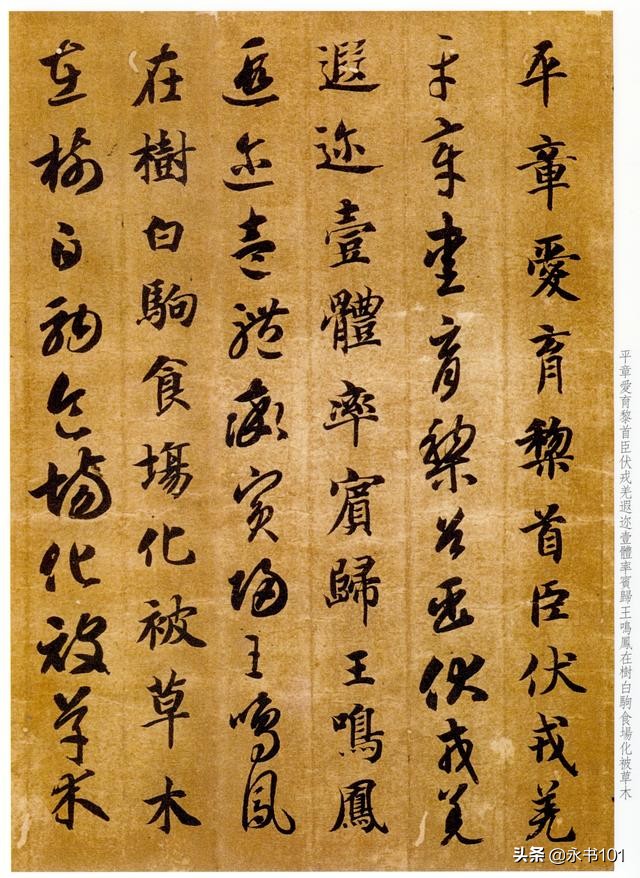 平章愛育黎首臣伏戎羌
平章愛育黎首臣伏戎羌
遐迩壹體率賓歸王鳴鳳
遐迩壹體率賓歸王鳴鳳
在樹白駒食塲化被草木
在樹白駒食場化被草木
平章愛育黎首臣伏戎羌遐迩壹體率賓歸王鳴鳳在樹白駒食場化被草木
头条 @永书101